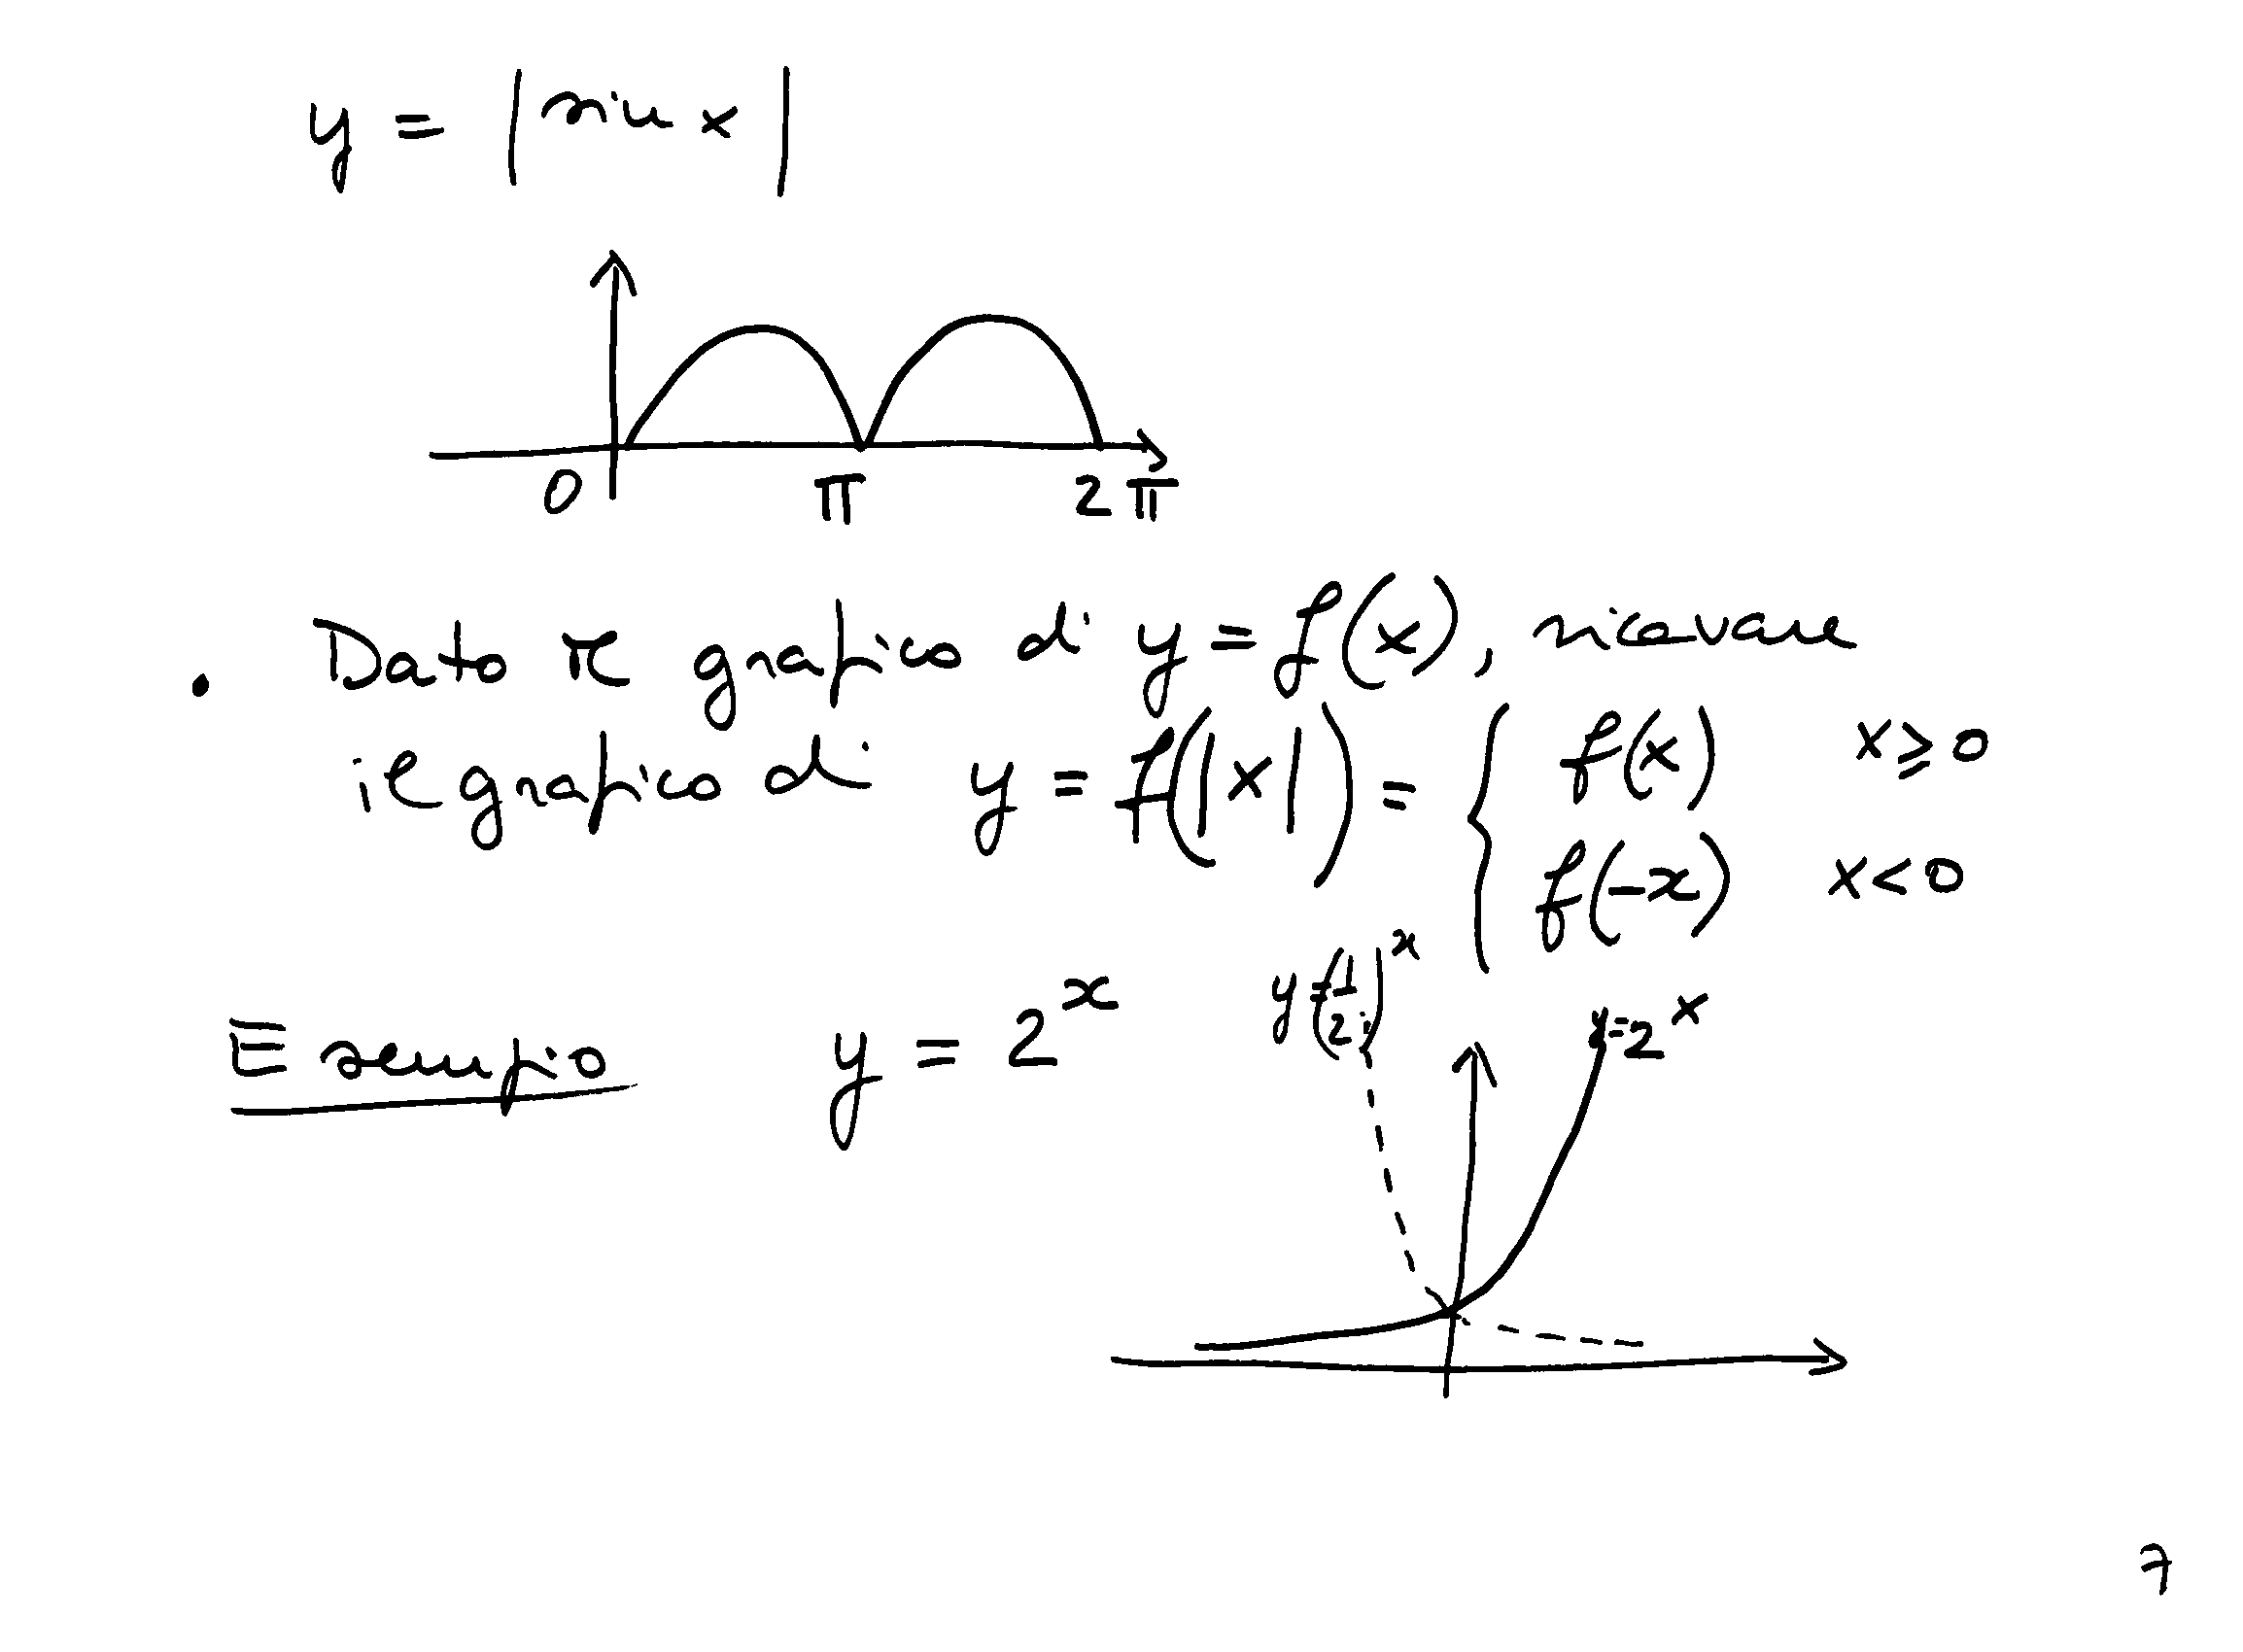 y = |sin x|
0 π 2π
• Dato il grafico di y = f(x), ricavare
il grafico di y = f(|x|) = { f(x) x ≥ 0
f(-x) x < 0
Esempio y = 2^x
y = (1/2)^x
y = 2^x
7